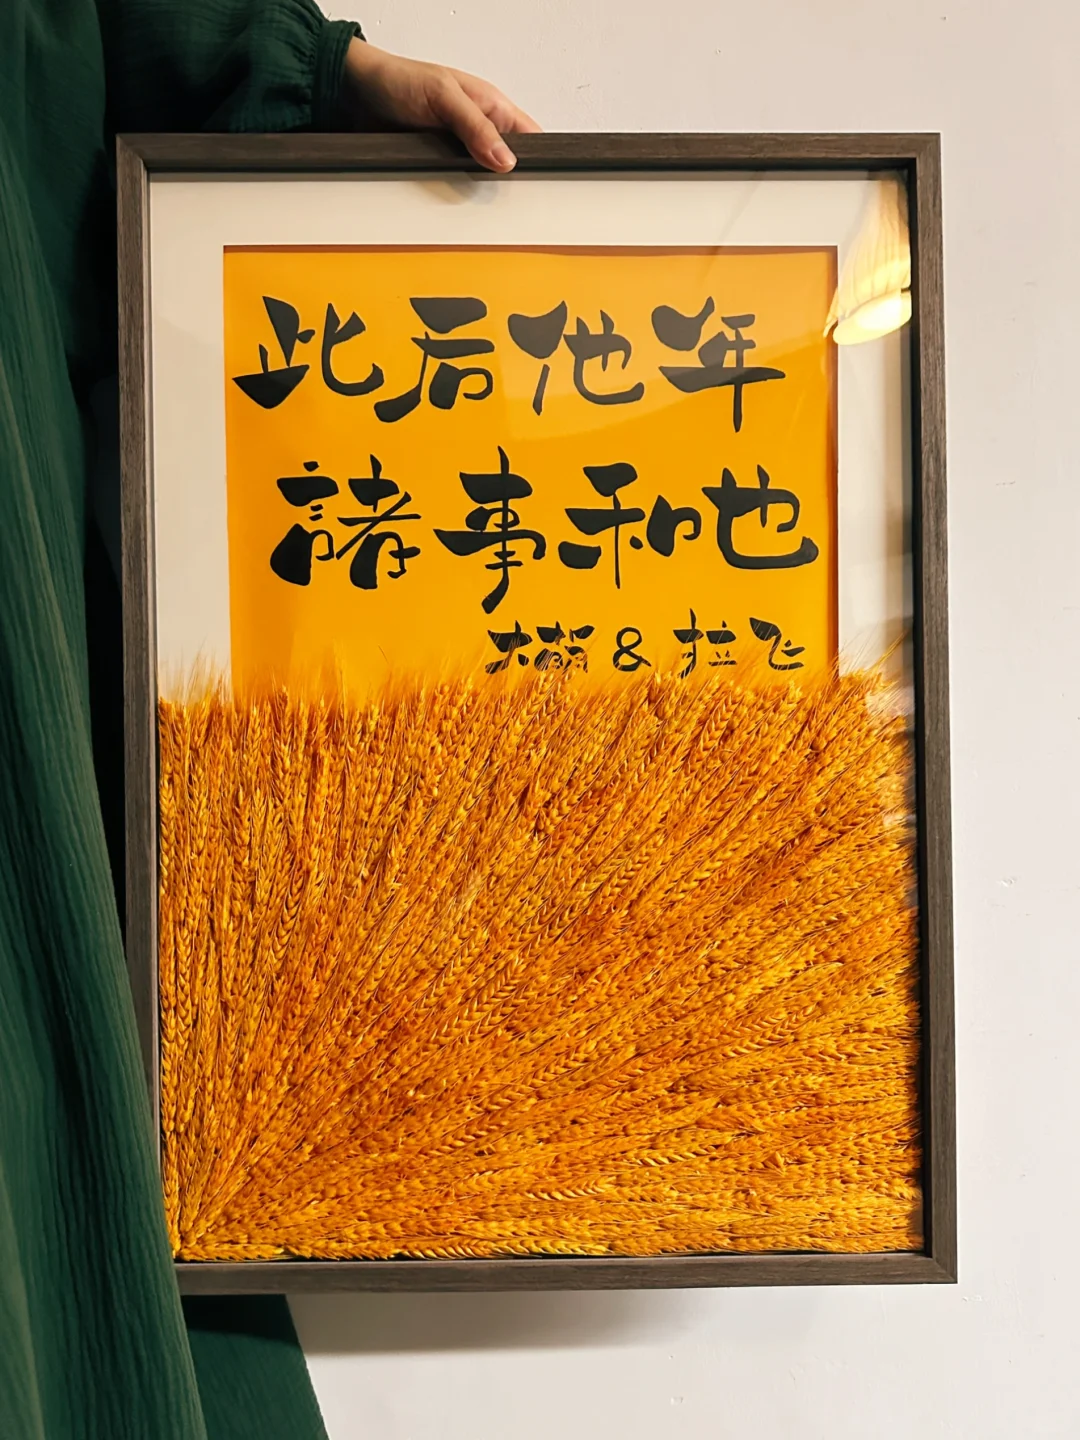 此后他年
諸事和他
大萌 & 拉飞